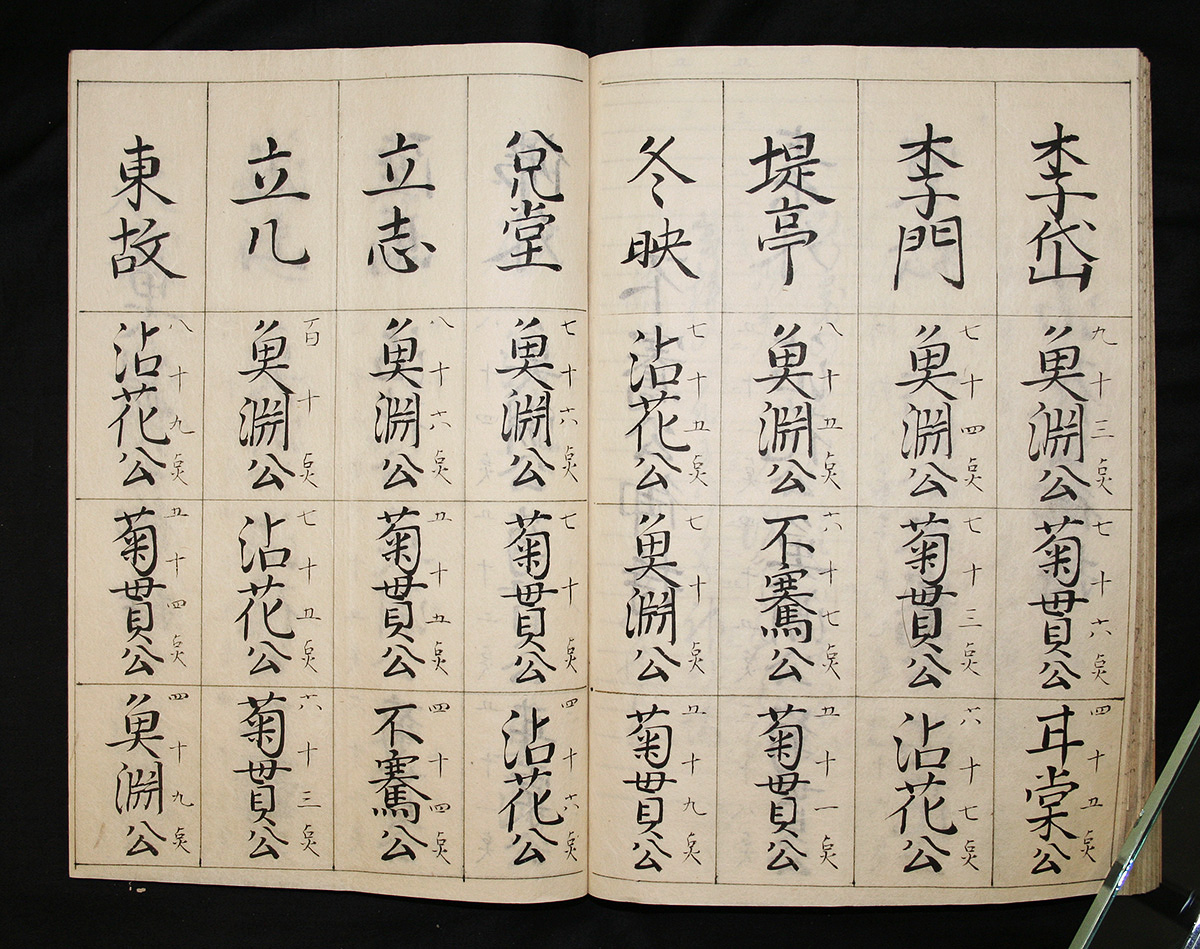 李岱
九十三点
魚淵公
七十六点
菊貫公
四十五点
甘棠公
李門
七十四点
魚淵公
七十三点
菊貫公
六十七点
沾花公
堤亭
八十五点
魚淵公
六十七点
不騫公
五十一点
菊貫公
冬映
七十五点
沾花公
七十点
魚淵公
五十九点
菊貫公
兌堂
七十六点
魚淵公
七十点
菊貫公
四十六点
沾花公
立志
八十六点
魚淵公
五十五点
菊貫公
四十四点
不騫公
立几
百十点
魚淵公
七十五点
沾花公
六十三点
菊貫公
東故
八十九点
沾花公
五十四点
菊貫公
四十九点
魚淵公